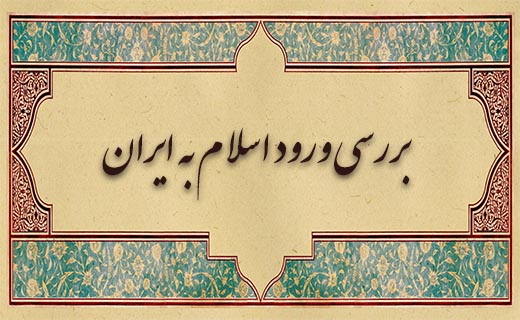 بررسی ورود اسلام به ایران